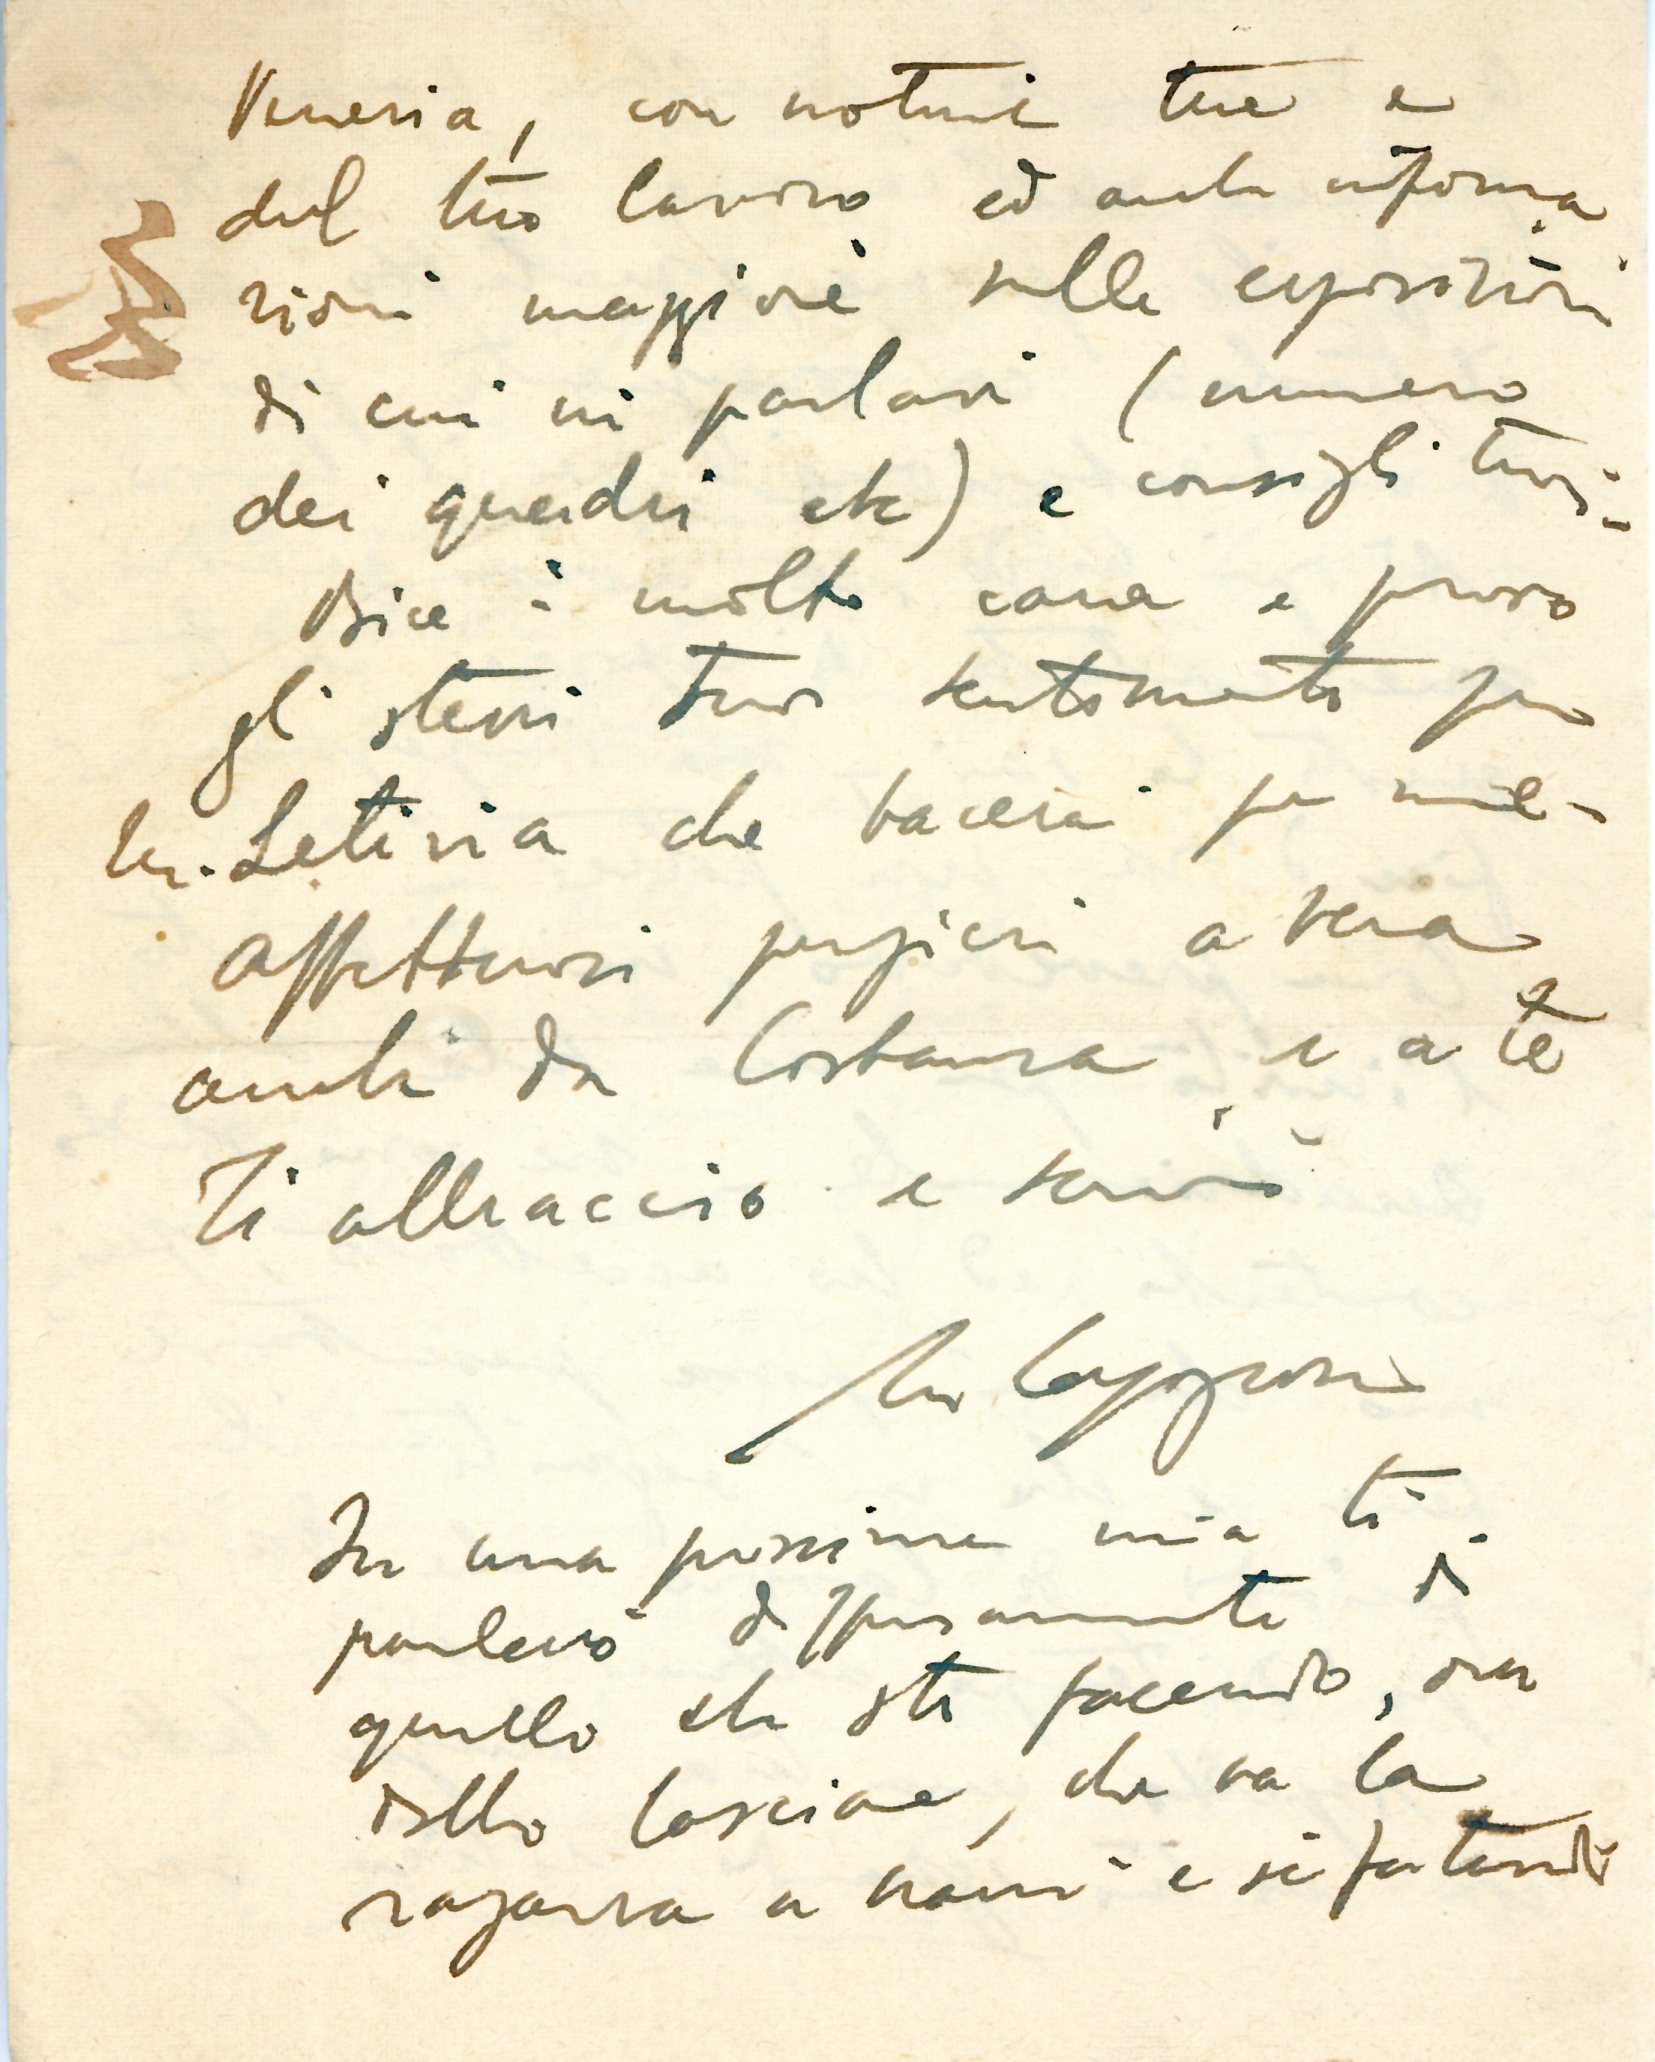 Venezia, con notizie tue e
del tuo lavoro ed anche informa
zioni maggiori sulle esposizioni
di cui mi parlavi (numero
dei quadri etc) e consigli tuoi.-
Bice è molto cara e provo
gli stessi tuoi sentimenti per
Letizia che bacerai per me-
Affettuosi pensieri a Vera
anche da Costanza e a te
Ti abbraccio e scrivi
tuo Capogrossi
In una prossima mia ti
parlerò diffusamente di
quello che sto facendo, ora
debbo lasciare, che va la
ragazza a Narni e si fa tardi